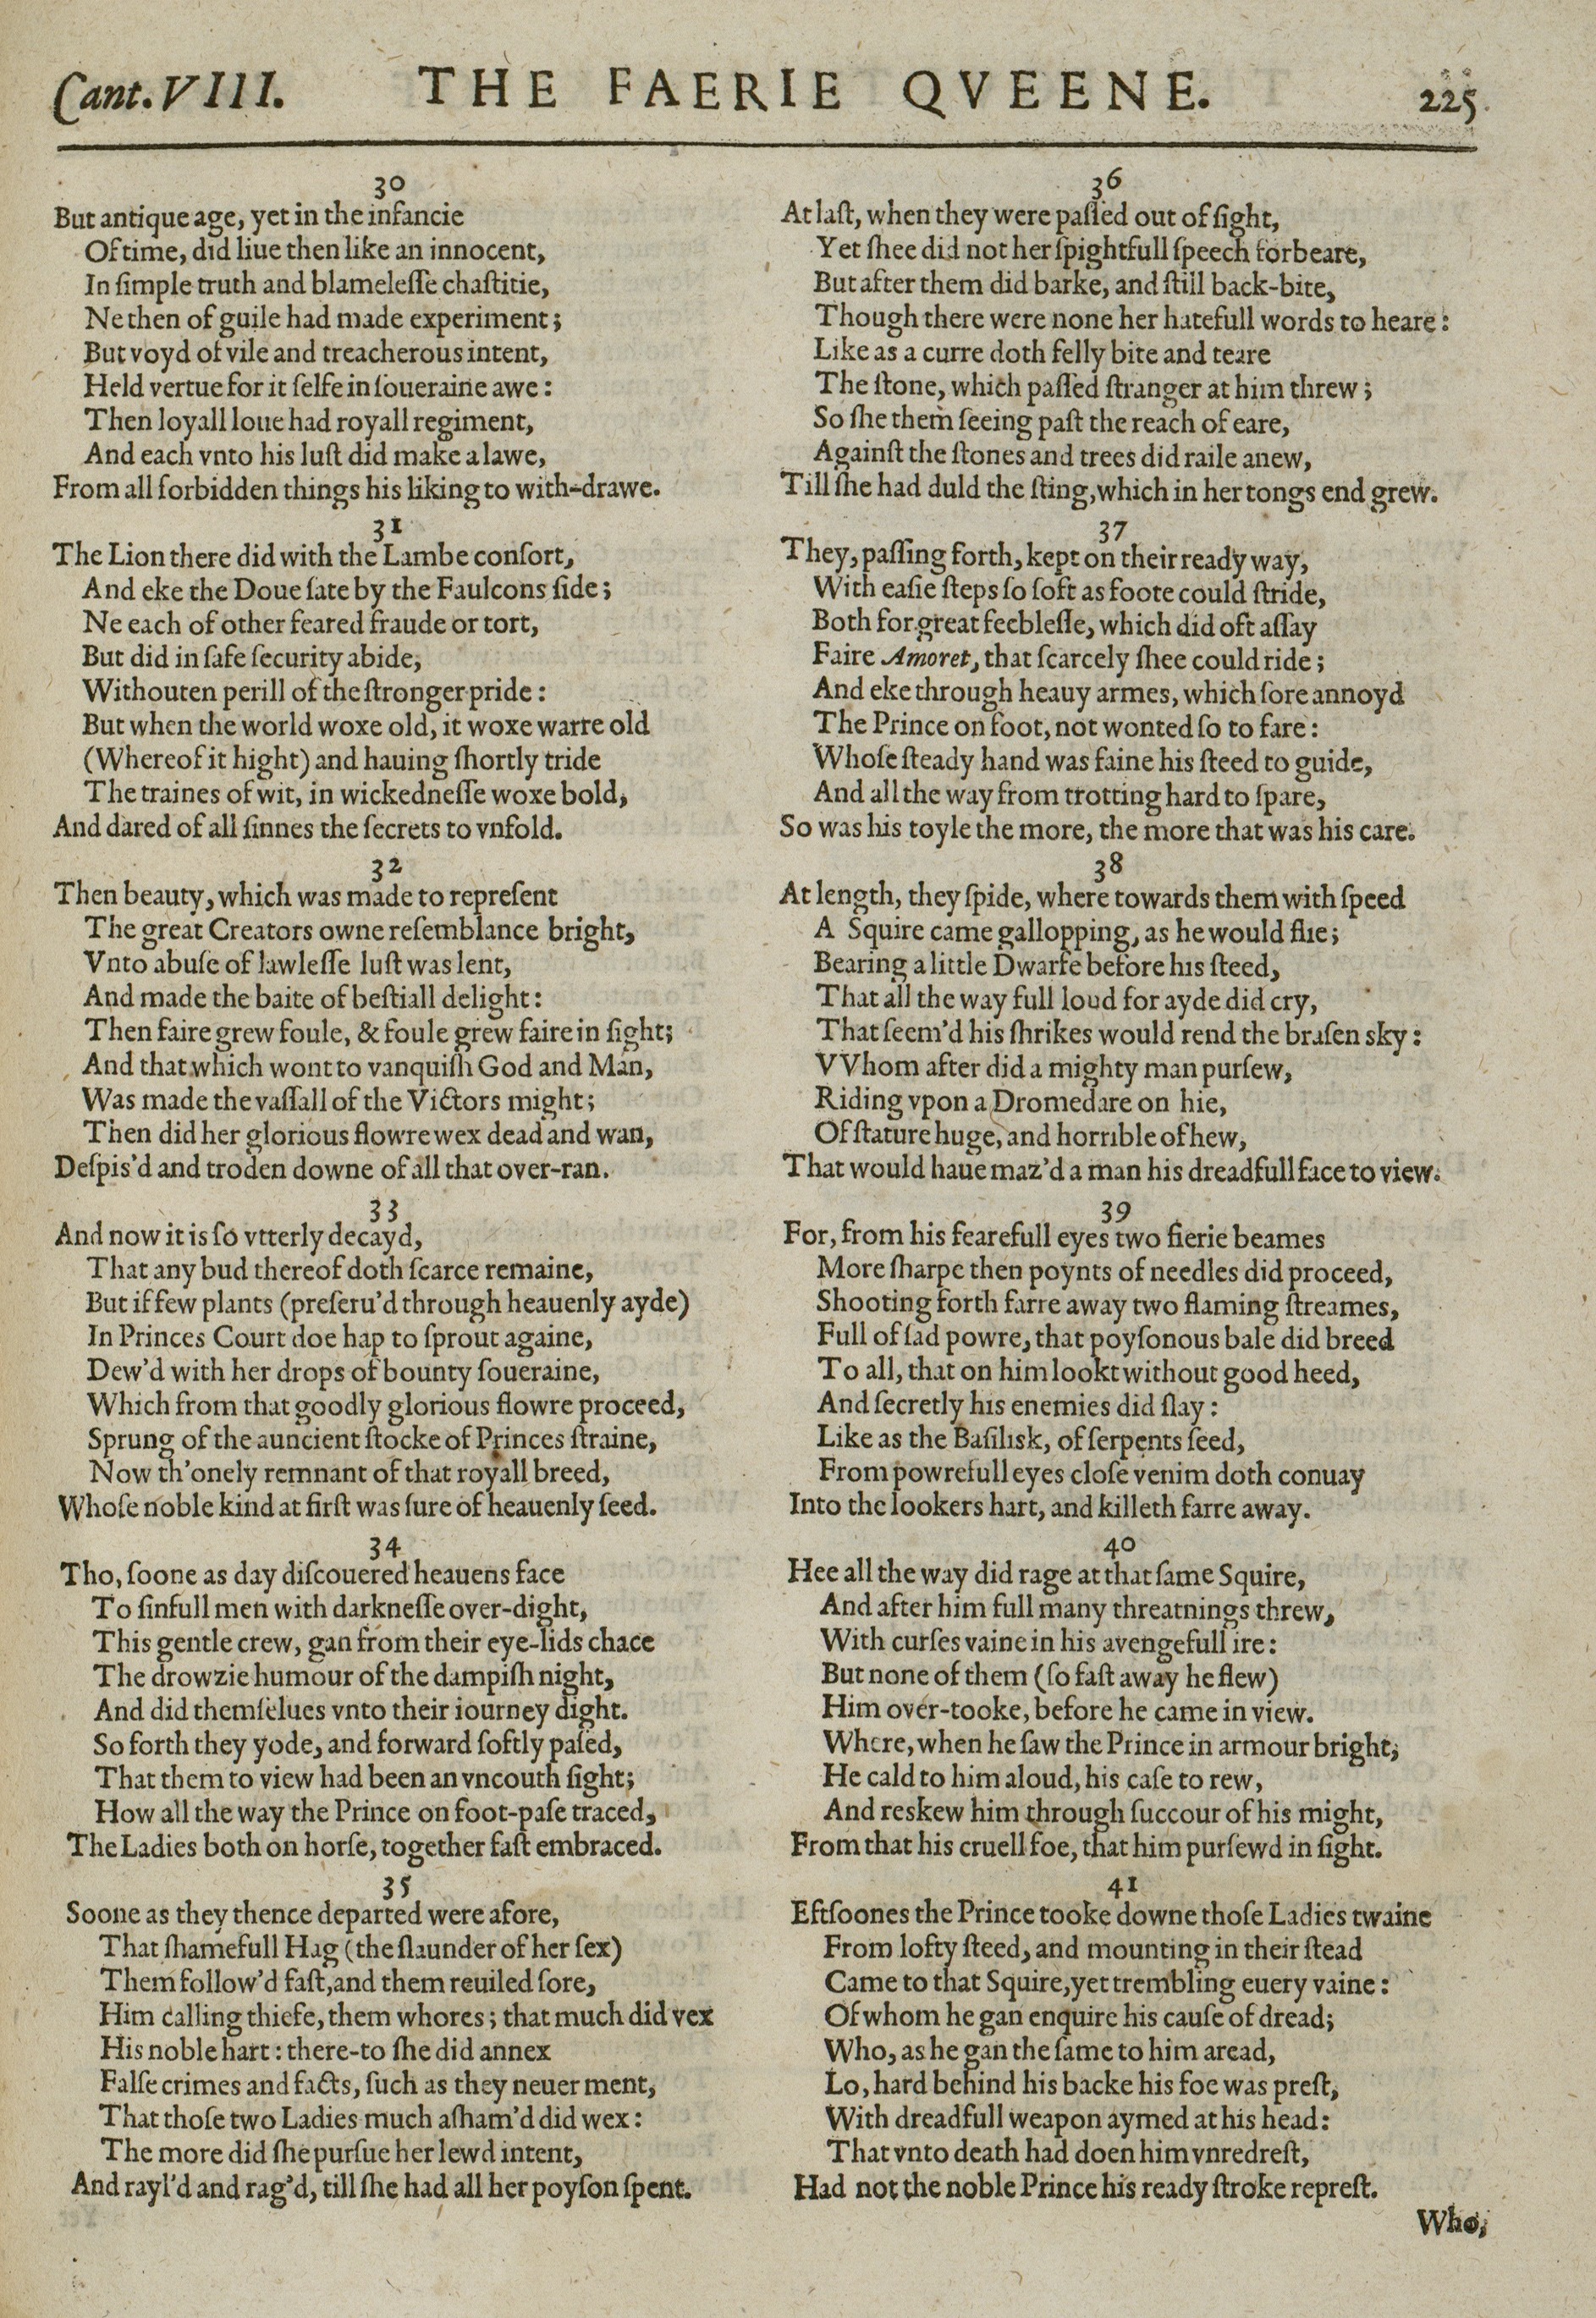 Cant. VIII. THE FAERIE QVEENE. 225
30
But antique age, yet in the infancie
Of time, did liue then like an innocent,
In ſimple truth and blameleſſe chaſtitie,
Ne then of guile had made experiment;
But voyd of vile and treacherous intent,
Held vertue for it ſelfe in ſoueraine awe:
Then loyall loue had royall regiment,
And each vnto his luſt did make a lawe,
From all forbidden things his liking to with-drawe.
31
The Lion there did with the Lambe conſort,
And eke the Doue ſate by the Faulcons ſide;
Ne each of other feared fraude or tort,
But did in ſafe ſecurity abide,
Withouten perill of the ſtronger pride:
But when the world woxe old, it woxe warre old
(Whereof it hight) and hauing ſhortly tride
The traines of wit, in wickedneſſe woxe bold,
And dared of all ſinnes the ſecrets to vnfold.
32
Then beauty, which was made to repreſent
The great Creators owne reſemblance bright,
Vnto abuſe of lawleſſe luſt was lent,
And made the baite of beſtiall delight:
Then faire grew foule, & foule grew faire in ſight;
And that which wont to vanquiſh God and Man,
Was made the vaſſall of the Victors might;
Then did her glorious flowre wex dead and wan,
Deſpis'd and troden downe of all that over-ran.
33
And now it is ſo vtterly decayd,
That any bud thereof doth ſcarce remaine,
But if few plants (preſeru'd through heauenly ayde)
In Princes Court doe hap to ſprout againe,
Dew'd with her drops of bounty ſoueraine,
Which from that goodly glorious flowre proceed,
Sprung of the auncient ſtocke of Princes ſtraine,
Now th'onely remnant of that royall breed,
Whoſe noble kind at firſt was ſure of heauenly ſeed.
34
Tho, ſoone as day diſcouered heauens face
To ſinfull men with darkneſſe over-dight,
This gentle crew, gan from their eye-lids chace
The drowzie humour of the dampiſh night,
And did themſelues vnto their iourney dight.
So forth they yode, and forward ſoftly paſed,
That them to view had been an vncouth ſight;
How all the way the Prince on foot-paſe traced,
The Ladies both on horſe, together faſt embraced.
35
Soone as they thence departed were afore,
That ſhamefull Hag (the ſlaunder of her ſex)
Them follow'd faſt, and them reuiled ſore,
Him calling thiefe, them whores; that much did vex
His noble hart: there-to ſhe did annex
Falſe crimes and facts, ſuch as they neuer ment,
That thoſe two Ladies much aſham'd did wex:
The more did ſhe purſue her lewd intent,
And rayl'd and rag'd, till ſhe had all her poyſon ſpent.
36
At laſt, when they were paſſed out of ſight,
Yet ſhee did not her ſpightfull ſpeech forbeare,
But after them did barke, and ſtill back-bite,
Though there were none her hatefull words to heare:
Like as a curre doth felly bite and teare
The ſtone, which paſſed ſtranger at him threw;
So ſhe them ſeeing paſt the reach of eare,
Againſt the ſtones and trees did raile anew,
Till ſhe had duld the ſting, which in her tongs end grew.
37
They, paſſing forth, kept on their ready way,
With eaſie ſteps ſo ſoft as foote could ſtride,
Both for great feebleſſe, which did oft aſſay
Faire Amoret, that ſcarcely ſhee could ride;
And eke through heauy armes, which ſore annoyd
The Prince on foot, not wonted ſo to fare:
Whoſe ſteady hand was faine his ſteed to guide,
And all the way from trotting hard to ſpare,
So was his toyle the more, the more that was his care.
38
At length, they ſpide, where towards them with ſpeed
A Squire came gallopping, as he would flie;
Bearing a little Dwarfe before his ſteed,
That all the way full loud for ayde did cry,
That ſeem'd his ſhrikes would rend the braſen sky:
VVhom after did a mighty man purſew,
Riding vpon a Dromedare on hie,
Of ſtature huge, and horrible of hew,
That would haue maz'd a man his dreadfull face to view.
39
For, from his fearefull eyes two fierie beames
More ſharpe then poynts of needles did proceed,
Shooting forth farre away two flaming ſtreames,
Full of ſad powre, that poyſonous bale did breed
To all, that on him lookt without good heed,
And ſecretly his enemies did ſlay:
Like as the Baſilisk, of ſerpents ſeed,
From powrefull eyes cloſe venim doth conuay
Into the lookers hart, and killeth farre away.
40
Hee all the way did rage at that ſame Squire,
And after him full many threatnings threw,
With curſes vaine in his avengefull ire:
But none of them (ſo faſt away he flew)
Him over-tooke, before he came in view.
Where, when he ſaw the Prince in armour bright,
He cald to him aloud, his caſe to rew,
And reskew him through ſuccour of his might,
From that his cruell foe, that him purſewd in ſight.
41
Eftſoones the Prince tooke downe thoſe Ladies twaine
From lofty ſteed, and mounting in their ſtead
Came to that Squire, yet trembling euery vaine:
Of whom he gan enquire his cauſe of dread;
Who, as he gan the ſame to him aread,
Lo, hard behind his backe his foe was preſt,
With dreadfull weapon aymed at his head:
That vnto death had doen him vnredreſt,
Had not the noble Prince his ready ſtroke repreſt.
Who,